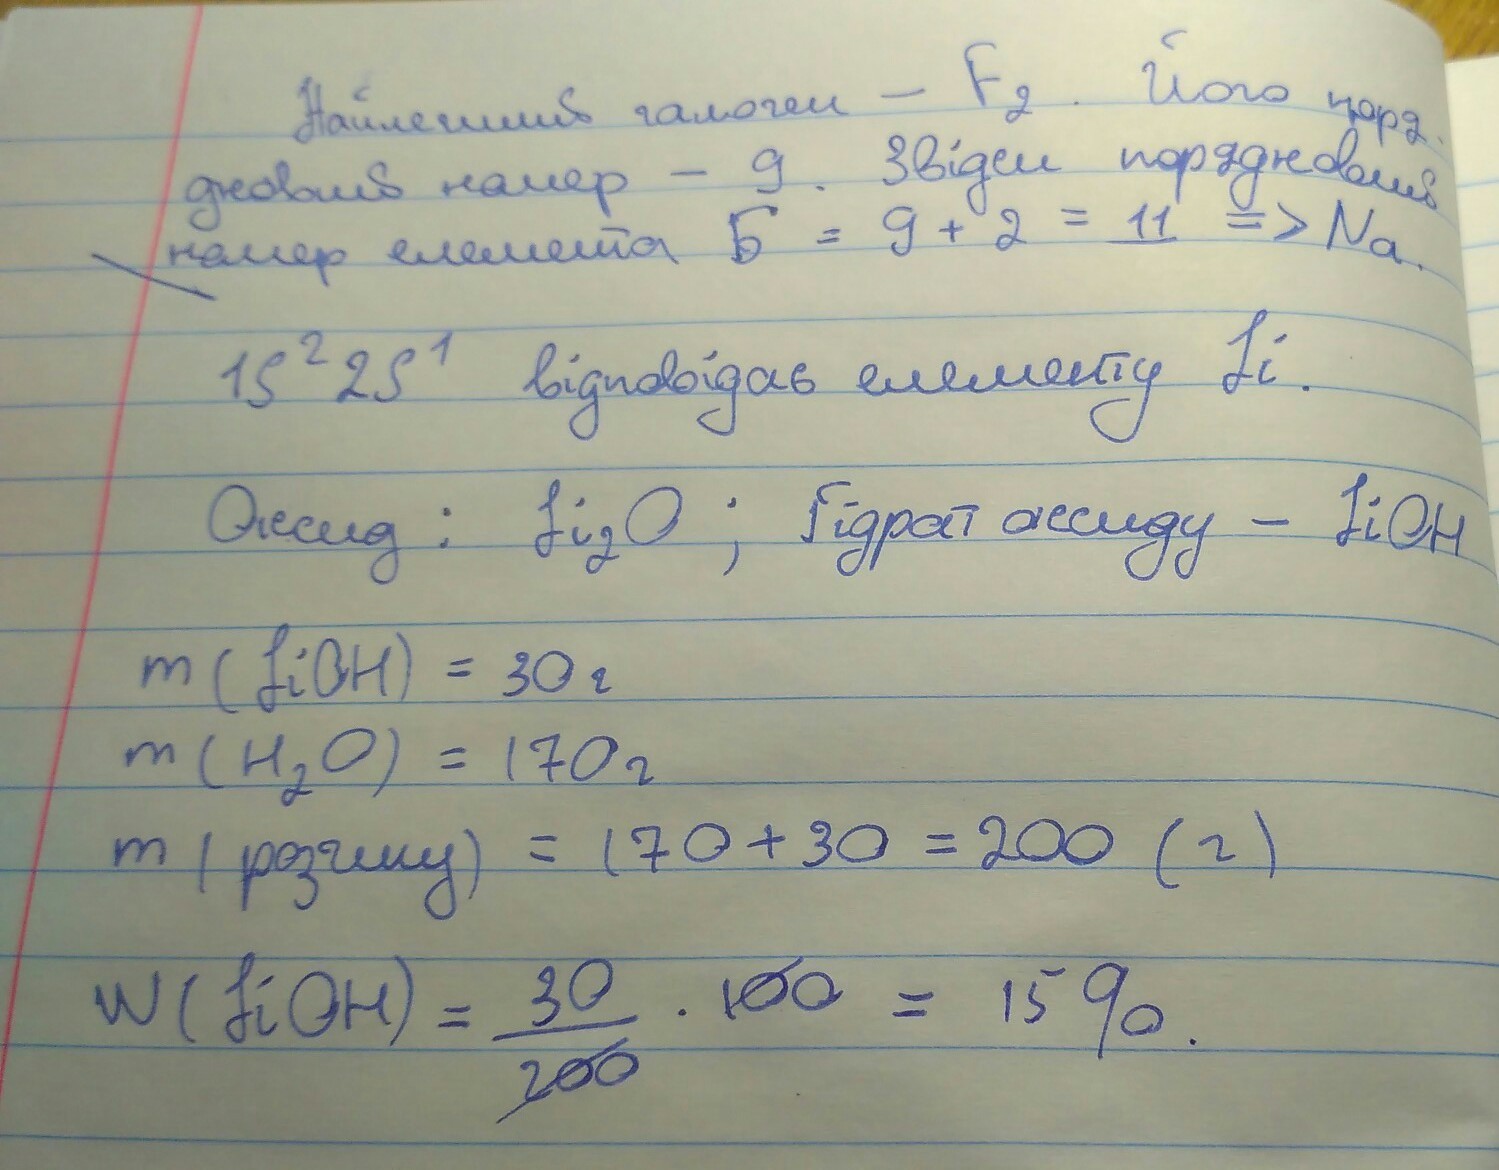 Найлегший галоген – F₂. Його поряд-
дковий номер – 9. Звідси порядковий
номер елемента Б = 9 + 2 = 11 => Na.
1S² 2S¹ відповідає елементу Li.
Оксид : Li₂O ; Гідрат оксиду – LiOH
m ( LiOH ) = 30 г
m ( H₂O ) = 170 г
m ( розчину ) = 170 + 30 = 200 ( г )
W ( LiOH ) = 30/200 · 100 = 15 %.